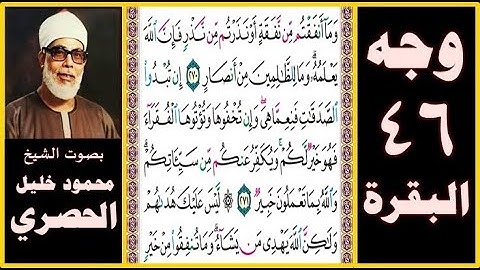 وجه
٤٦
البقرة
وَمَا أَنفَقْتُم مِّن نَّفَقَةٍ أَوْ نَذَرْتُم مِّن نَّذْرٍ فَإِنَّ اللَّهَ
يَعْلَمُهُ وَمَا لِلظَّالِمِينَ مِنْ أَنصَارٍ ٢٧٠ إِن تُبْدُوا
الصَّدَقَاتِ فَنِعِمَّا هِيَ وَإِن تُخْفُوهَا وَتُؤْتُوهَا الْفُقَرَاءَ
فَهُوَ خَيْرٌ لَّكُمْ وَيُكَفِّرُ عَنكُم مِّن سَيِّئَاتِكُمْ
وَاللَّهُ بِمَا تَعْمَلُونَ خَبِيرٌ ٢٧١ ۞ لَّيْسَ عَلَيْكَ هُدَاهُمْ
وَلَٰكِنَّ اللَّهَ يَهْدِي مَن يَشَاءُ وَمَا تُنفِقُوا مِنْ خَيْرٍ
بصوت الشيخ
محمود خليل
الحصري